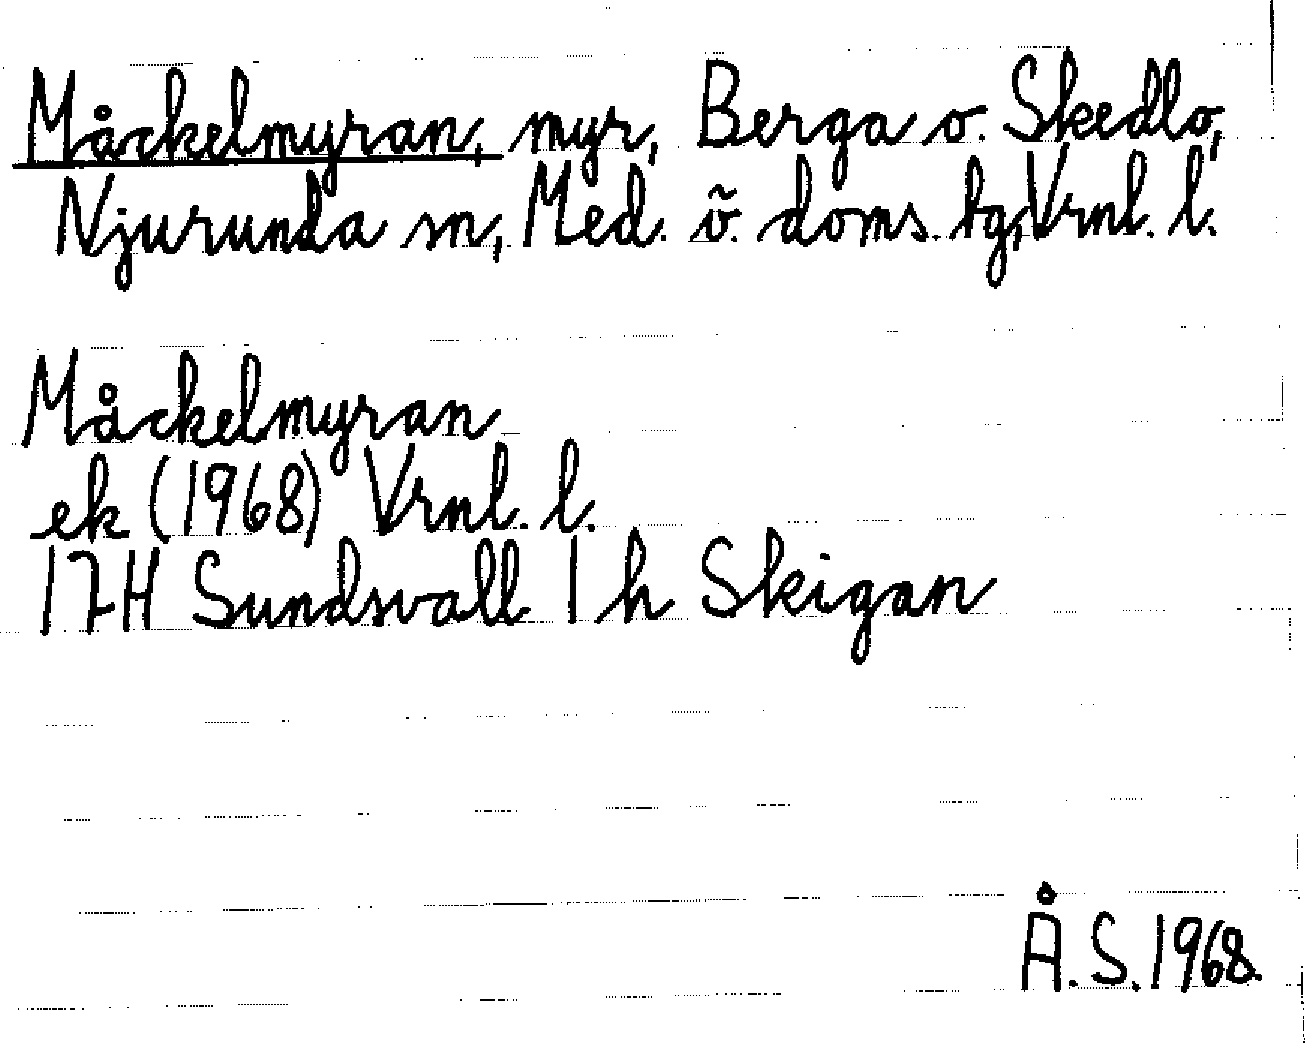 Måckelmyran, myr, Berga o. Skedlo,
Njurunda sn, Med. ö. doms. tg, Vrnl. l.
Måckelmyran
ek (1968) Vrnl. l.
17H Sundsvall 1 h Skigan
Å.S. 1968.